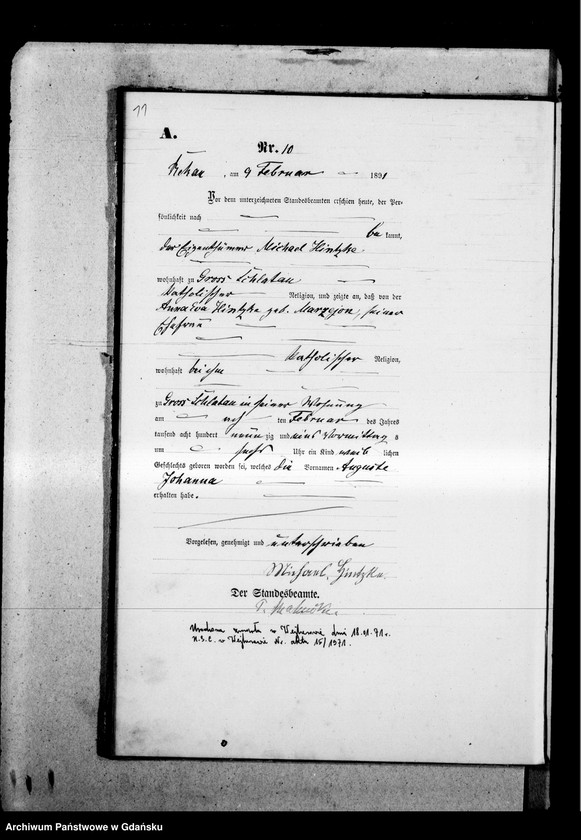 11
A.
Nr. 10
am 9 Februar 1891
Vor dem unterzeichneten Standesbeamten erschien heute, der Per-
sönlichkeit nach
be kannt,
der Eigenthümer Michael Hintzke
wohnhaft zu Gross Schlatau
katholischer Religion, und zeigte an, daß von der
Anna Eva Hintzke geb. Marzejon, seiner
Ehefrau
katholischer Religion,
wohnhaft bei ihm
zu Gross Schlatau in seiner Wohnung
am ten Februar des Jahres
tausend acht hundert neun zig und eins Vormittag s
um sechs Uhr ein Kind weib lichen
Geschlechts geboren worden sei, welches die Vornamen Auguste
Johanna
erhalten habe.
Vorgelesen, genehmigt und unterschrieben
Michael Hintzke.
Der Standesbeamte.
zmarła w Wejherowie dnia 18.01.71 r.
U.S.C. w Wejherowie Nr. aktu 15/1971.
Archiwum Państwowe w Gdańsku